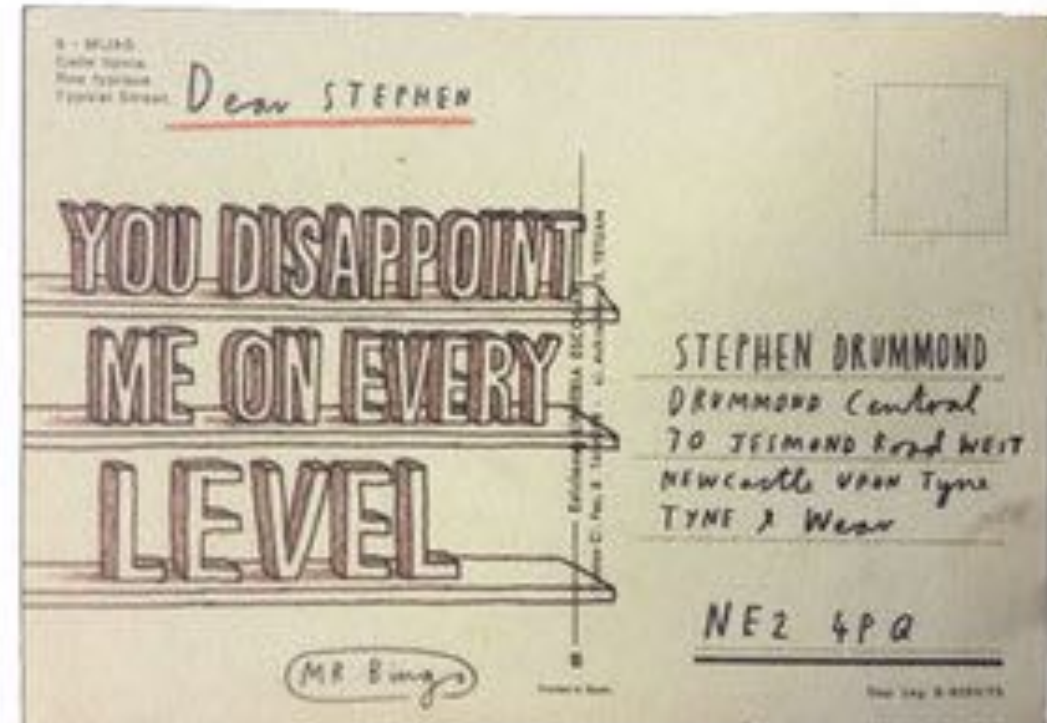 Calle típica
Rue typique
Typical Street
Dear STEPHEN
YOU DISAPPOINT
ME ON EVERY
LEVEL
MR Bingo
STEPHEN DRUMMOND
DRUMMOND Central
70 JESMOND Road WEST
NEWCastle UPON Tyne
TYNE & Wear
NE2 4PQ
Printed in Spain